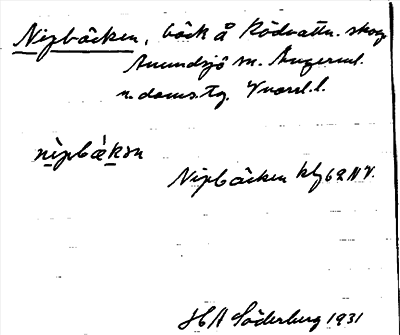 Nipbäcken, bäck å Rödvattn. skog
Anundsjö sn. Ångerml.
n. doms.tg. Vnorrl. l.
nìpbækən
Nipbäcken kbl 62 NV.
HA Söderberg 1931